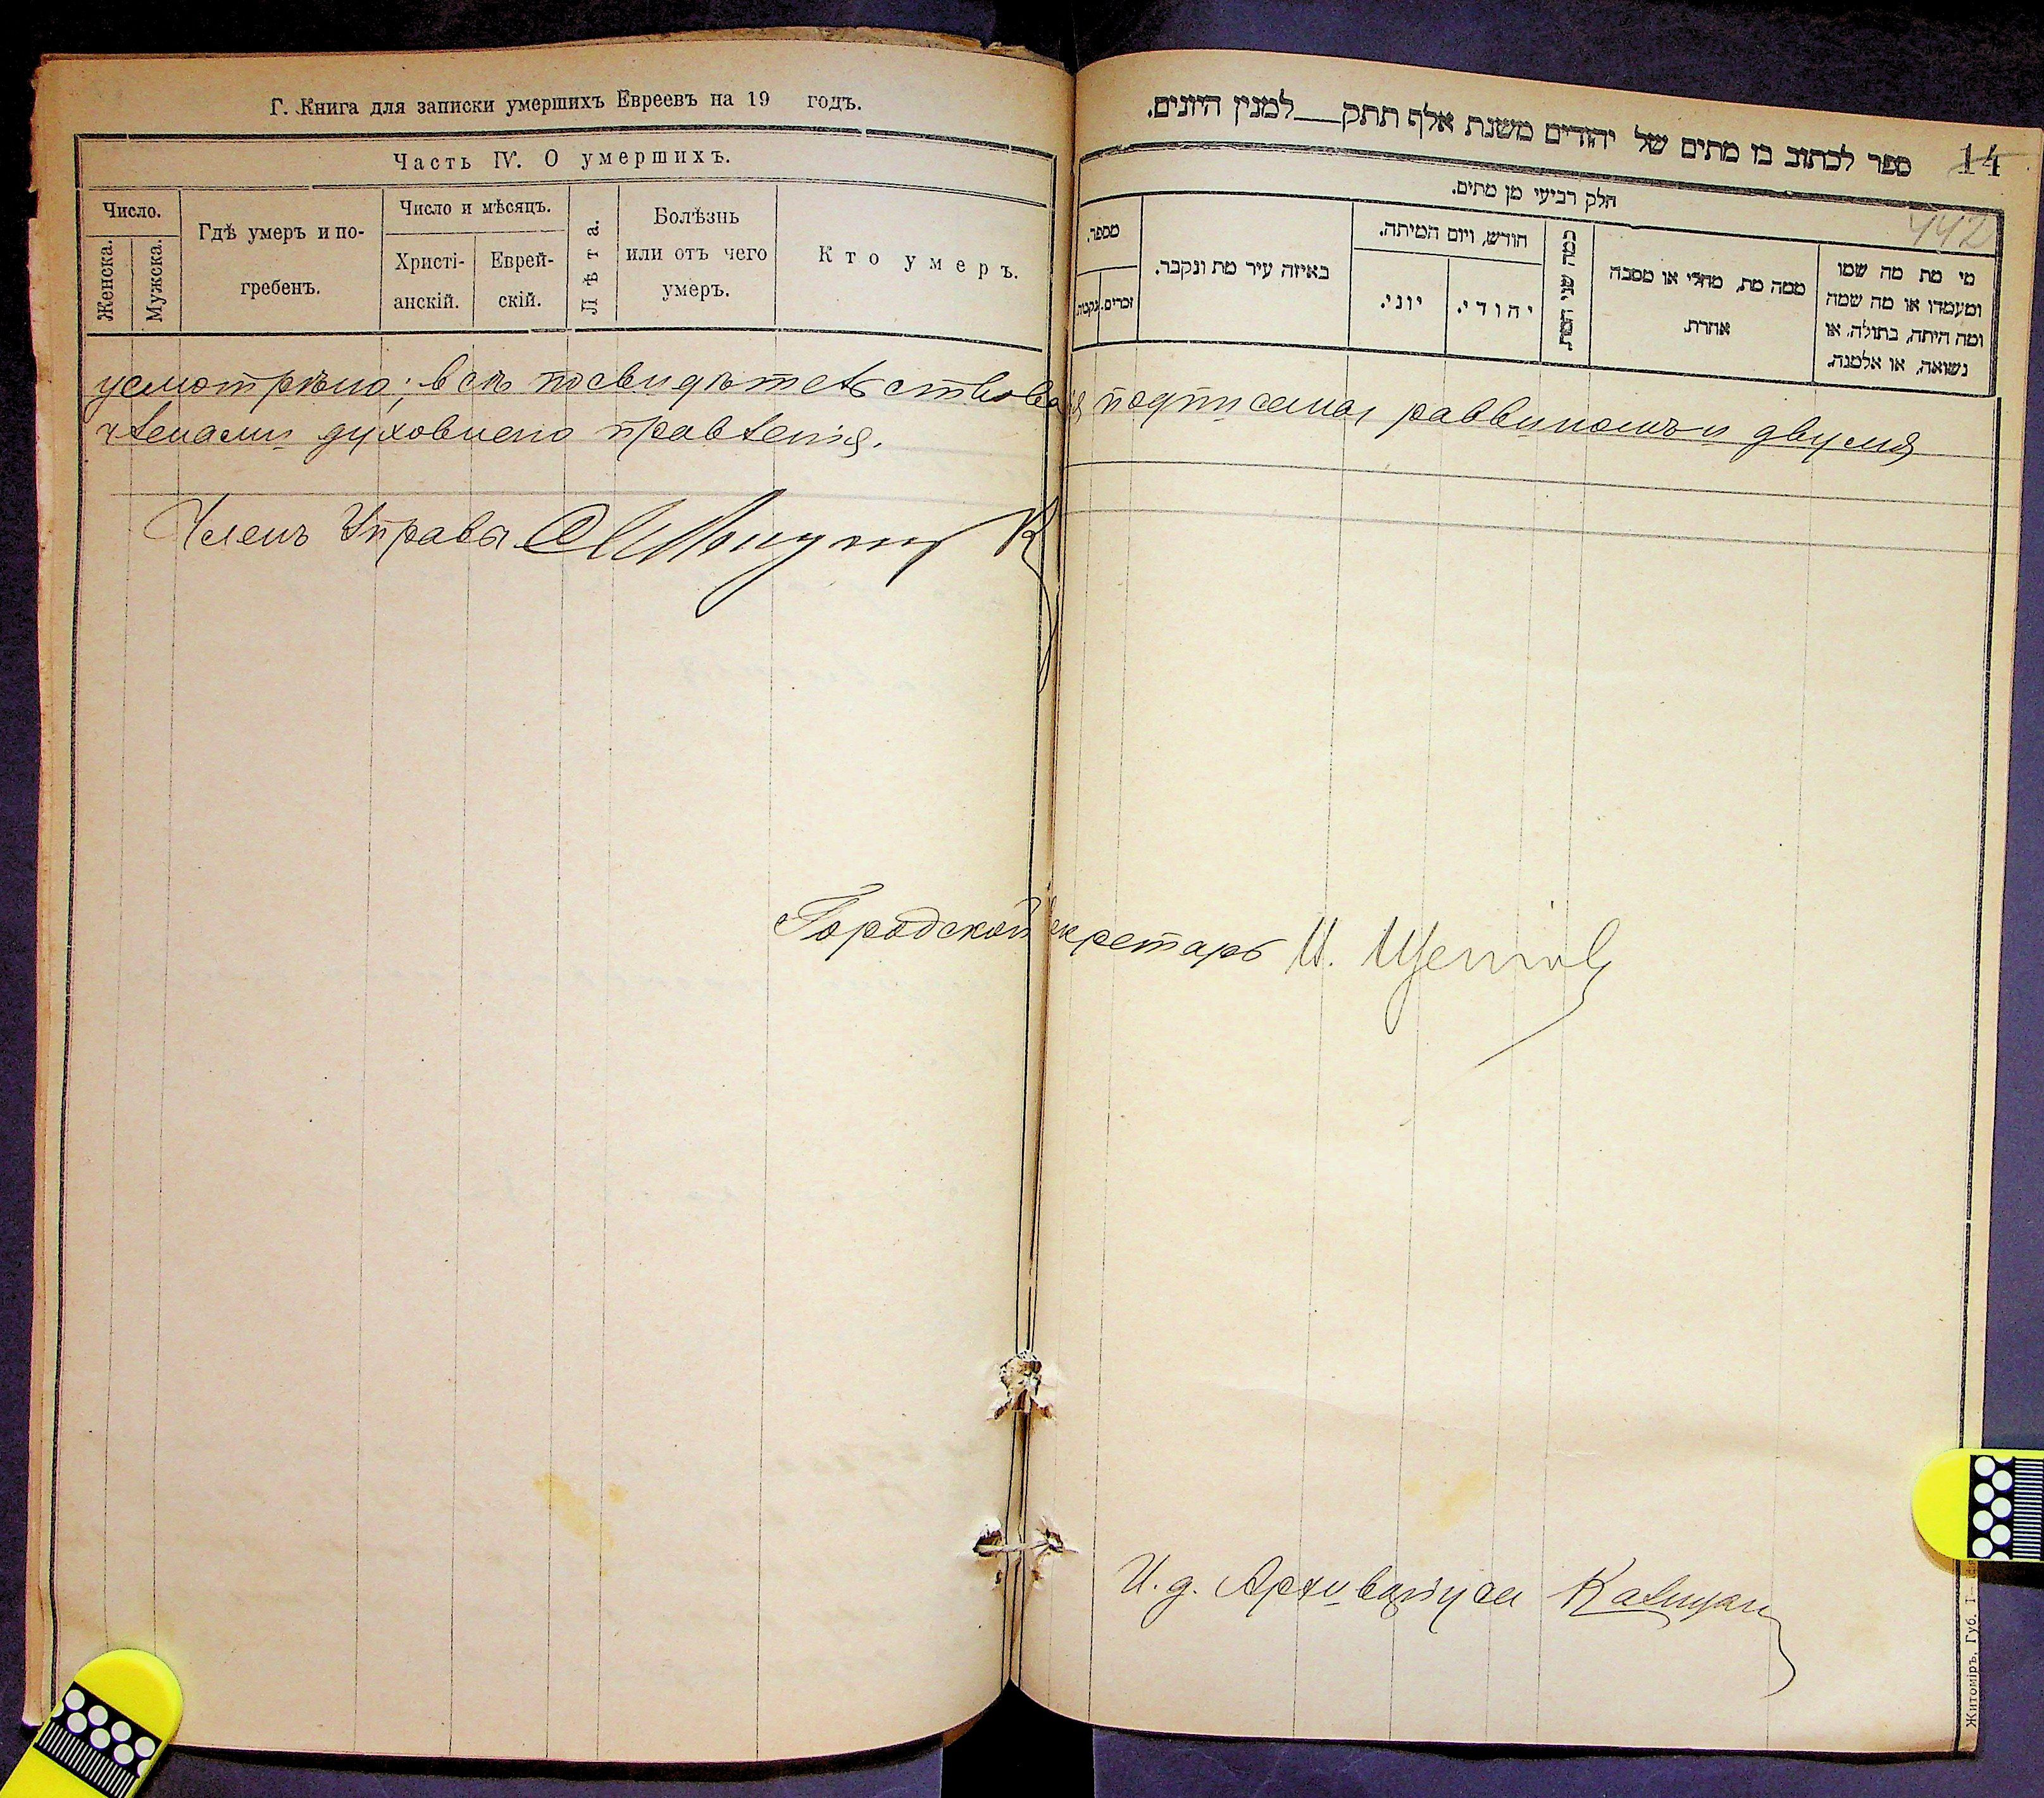 Г. Книга для записки умершихъ Евреевъ на 19 годъ.
Часть IV. О умершихъ.
Число.
Женска.
Мужска.
Гдѣ умеръ и по-
гребенъ.
Число и мѣсяцъ.
Христі-
анскій.
Еврей-
скій.
Лѣта.
Болѣзнь
или отъ чего
умеръ.
Кто умеръ.
ספר לכתוב בו מתים של יהודים משנת אלף תתק__למנין היונים.
14
442
חלק רביעי מן מתים.
מספר.
נקבות.
זכרים.
באיזה עיר מת ונקבר.
חודש, ויום המיתה.
יוני.
יהודי.
כמה שני המת
ממה מת, מחלי או מסבה
אחרת.
מי מת מה שמו
ומעמדו או מה שמה
ומה היתה, בתולה, או
נשואה, או אלמנה.
усмотрѣно; всѣ подписаны раввиномъ и двумя
членами духовнаго правленія.
Членъ Управы
Городской секретарь И.
И. д. Архиваріуса
Житоміръ, Губ.